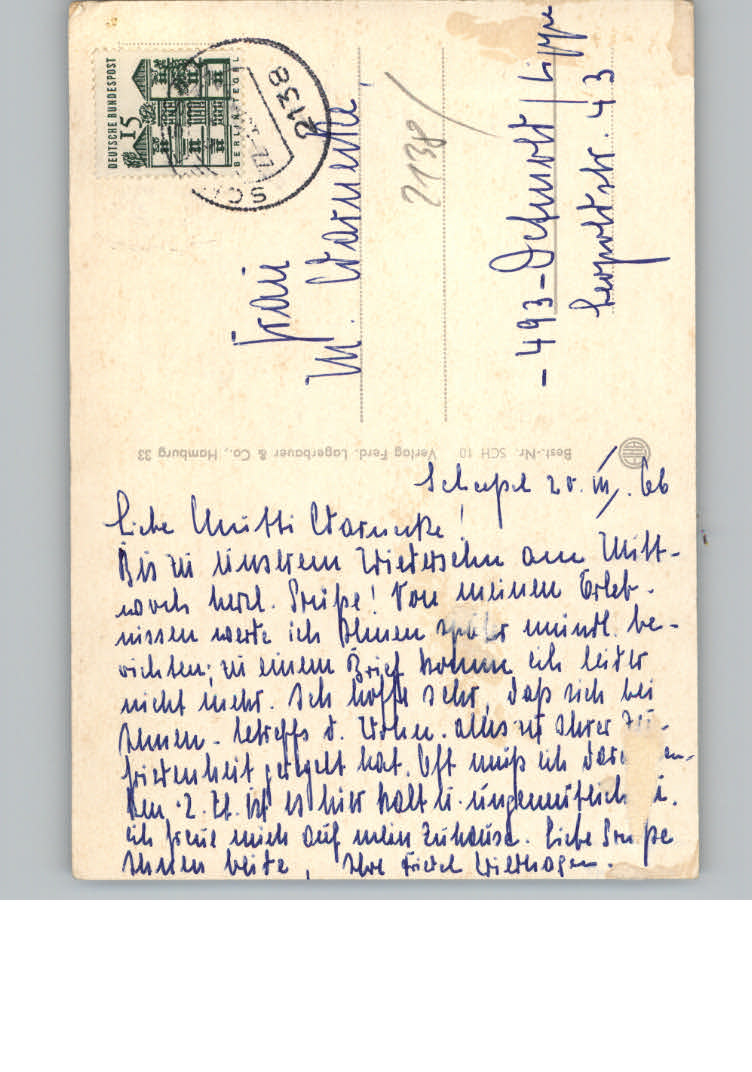 DEUTSCHE BUNDESPOST
15
BERLIN TEGEL
2138
SC
2138
Frau
M. Warnecke
-493- Detmold / Lippe
Leopoldstr. 43
Best.-Nr. SCH 10 Verlag Ferd. Lagerbauer & Co., Hamburg 33
Scheeßel 20. III. 66
Liebe Mutti Warnecke!
Bis zu unserem Wiedersehn am Mitt-
woch herzl. Grüße! Von meinen Erleb-
nissen werde ich Ihnen später mündl. be-
richten; zu einem Brief komme ich leider
nicht mehr. Ich hoffe sehr, daß sich bei
Ihnen betreffs d. Wohn. alles zu Ihrer Zu-
friedenheit geregelt hat. Oft muß ich
ken. Z. Zt. ist es hier kalt u. ungemütlich u.
ich freue mich auf mein Zuhause. Liebe Grüße
Ihnen beide, Ihre